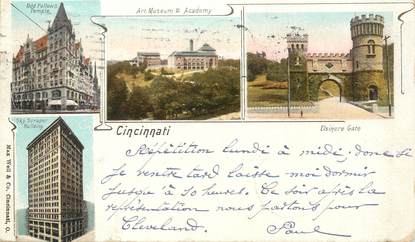 Odd Fellows
Temple.
Art Museum & Academy
Elsinore Gate
Sky Scraper
Building
Cincinnati
Max Weil & Co., Cincinnati, O.
Répétition lundi à midi, donc si
je rentre tard laisse moi dormir
jusqu'à 10 heures. Ce soir après la
représentation nous partons pour
Cleveland. Paul